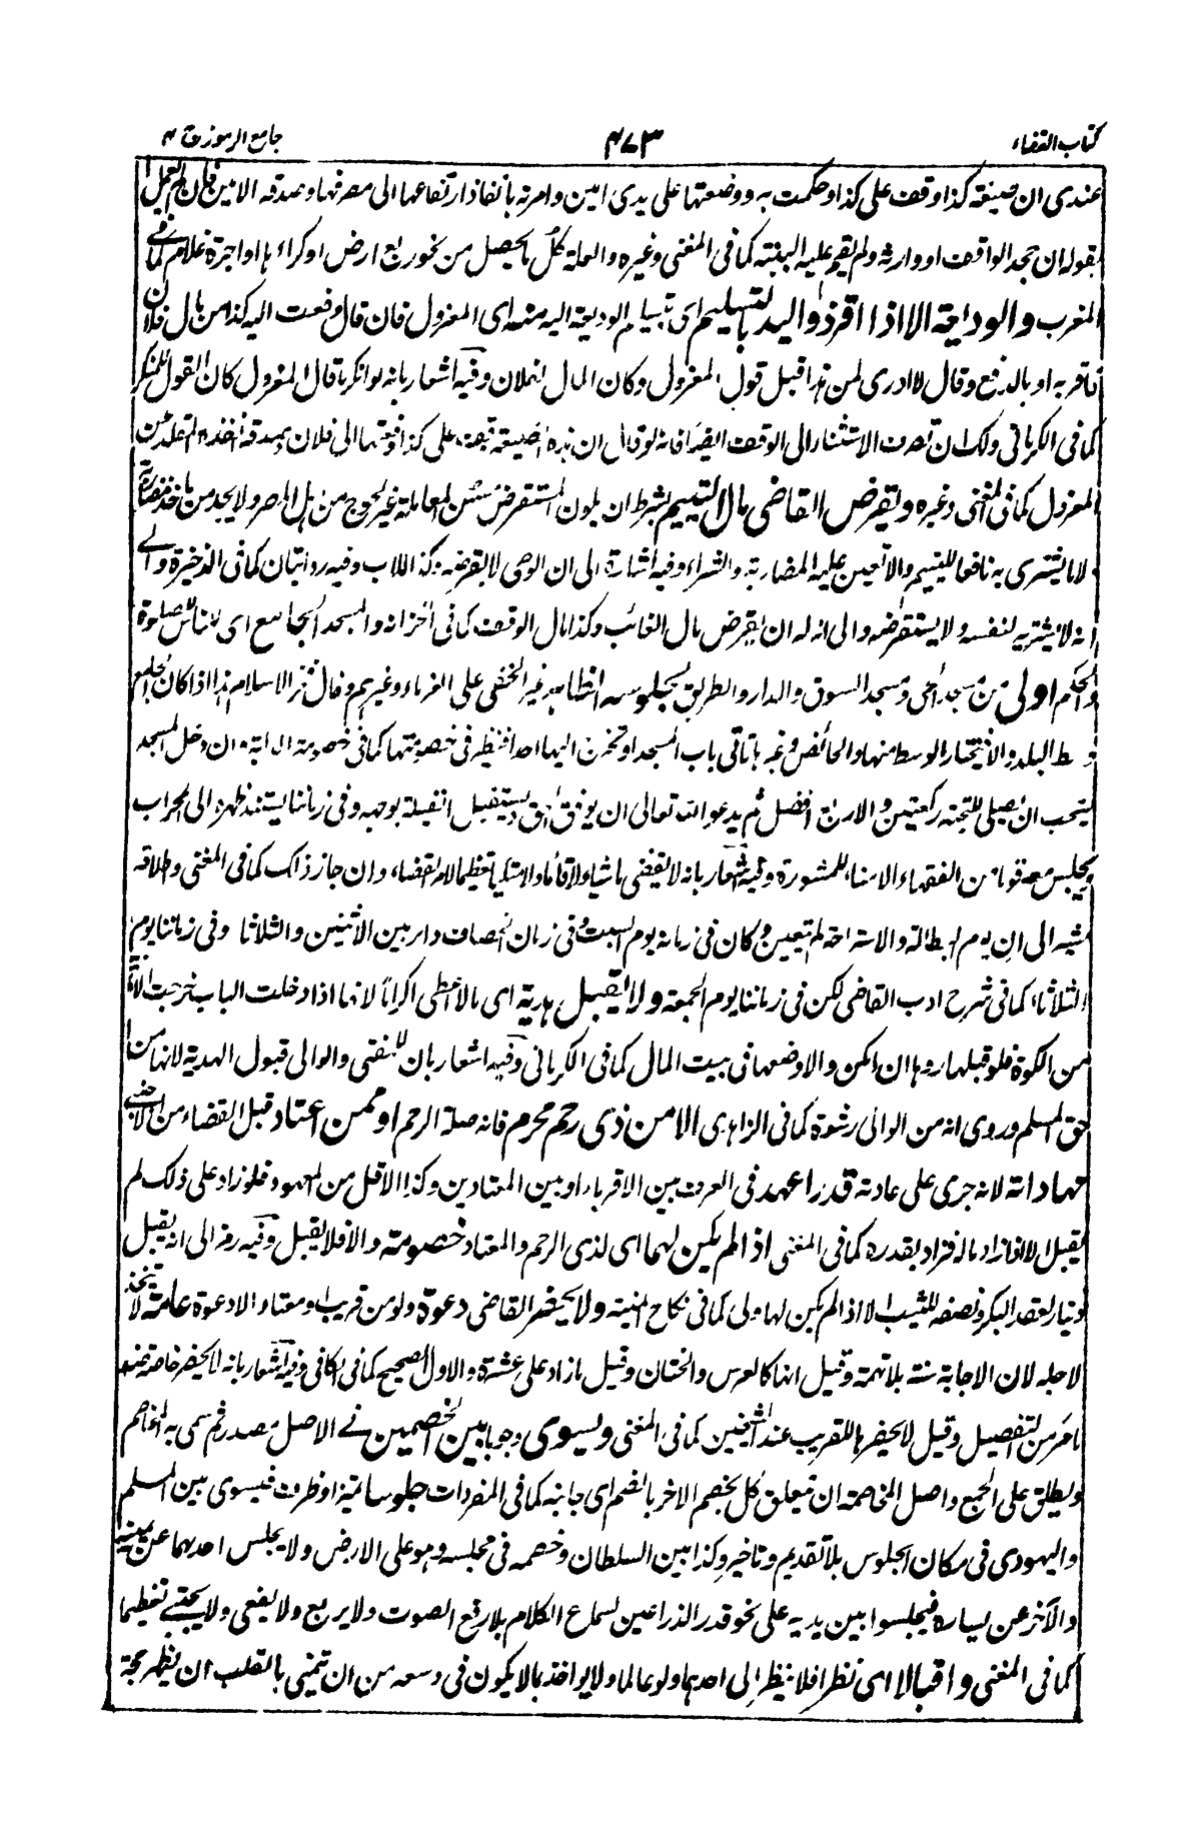 كتاب القضاء ٤٧٣ جامع الرموز ق ٤
عندى ان ضيعة كذا وقف على كذا وحكمت به ووضعتها على يدى امين وامرته بانفاذ ارتفاعها الى مصرفها وصدقه الامين فان لم يعمل
بقوله ان جحد الواقف او وارثه ولم يقم عليه البينة كما فى المغنى وغيره والغلة كل ما يحصل من نحو ريع ارض او كراء ها او اجرة غلام كما فى
المغرب والوديعة الا اذا اقر ذو اليد بالتسليم اى تسليم الوديعة اليه منه اى المعزول فان قال دفعت اليه كذا من مال فلان
فاقر به او بالدفع وقال لا ادرى لمن هذا قبل قول المعزول وكان المال لفلان وفيه اشعار بانه لو انكر ما قال المعزول كان القول للمنكر
كما فى الكرمانى ولك ان تصرف الاستثناء الى الوقف ايضا فانه لو قال ان هذه الضيعة على كذا دفعتها الى فلان وصدقه
المعزول كما فى المغنى وغيره ويقرض القاضى مال اليتيم بشرط ان يكون المستقرض حسن المعاملة غير لجوج من اهل المصر ولا يجد من ياخذ مضاربة
ولا ما يشترى به نافعا لليتيم والا تعين عليه المضاربة والشراء وفيه اشارة الى ان الوصى لا يقرضه وكذا الاب وفيه روايتان كما فى الذخيرة والى
انه لا يشتريه لنفسه ولا يستقرضه والى انه له ان يقرض مال الغائب وكذا مال الوقف كما فى الخزانة والمسجد الجامع اى للناس للصلوة
والحكم اولى من مسجد الحى ومسجد السوق والدار والطريق لجلوسه الظاهر غير الخفى على الغرباء وغيرهم وقال فخر الاسلام هذا اذا كان الجامع
وسط البلد والا فيختار الوسط منها والحائض وغيرها تاتى باب المسجد او تخرج اليها احد فينظر فى خصومتها كما فى خصومة الدابة وان دخل المسجد
يستحب ان يصلى للتحية ركعتين والاربع افضل ثم يدعو الله تعالى ان يوفق للحق ويستقبل القبلة بوجهه وفى زماننا يستند ظهره الى المحراب
ويجلس معه قوما من الفقهاء الامناء للمشورة وفيه اشعار بانه لا يقضى ماشيا ولا قائما ولا متكئا تعظيما لامر القضاء وان جاز ذلك كما فى المغنى واطلاقه
مشير الى ان يوم البطالة والاستراحة لم يتعين وكان فى زمانه يوم السبت وفى زمان الخصاف دائر بين الاثنين والثلاثا وفى زماننا يوم
الثلاثاء كما فى شرح ادب القاضى لكن فى زماننا يوم الجمعة ولا يقبل هدية اى مالا اعطى اكراما لانها اذا دخلت الباب خرجت الامانة
من الكوة فلو قبلها ردها ان امكن والا وضعها فى بيت المال كما فى الكرمانى وفيه اشعار بان للمفتى والوالى قبول الهدية لانها من
حق المسلم وروى انه من الوالى رشوة كما فى الزاهدى الا من ذى رحم محرم فانه صلة الرحم او ممن اعتاد قبل القضاء من الاجنبى
مهاداته لانه جرى على عادته قدرا عهد فى العرف بين الاقرباء او بين المعتادين وكذا الاقل من المعهود فلو زاد على ذلك لم
يقبل الا اذا زاد ماله فزاد بقدره كما فى المغنى اذا لم يكن لهما اى لذى الرحم والمعتاد خصومة والا فلا يقبل وفيه رمز الى انه يقبل
دينار لعقد البكر ونصفه للثيب الا اذا لم يكن لها ولى كما فى نكاح المنية ولا يحضر القاضى دعوة ولو من قريب او معتاد الا دعوة عامة لا تتخذ
لاجله لان الاجابة سنة بلا تهمة وقيل انها كالعرس والختان وقيل ما زاد على عشرة والاول الصحيح كما فى الكافى وفيه اشعار بانه لا يحضر خاصة
ما مر من التفصيل وقيل لا يحضرها للقريب عند الشيخين كما فى المغنى ويسوى وجوبا بين الخصمين فى الاصل مصدر ثم سمى به المخاصم
ويطلق على الجمع واصل المخاصمة ان يتعلق كل بخصم الاخر بالضم اى جانبه كما فى المفردات جلوسا تميز او ظرف فيسوى بين المسلم
واليهودى فى مكان الجلوس بلا تقديم وتاخير وكذا بين السلطان وخصمه فى مجلسه وهو على الارض ولا يجلس احدهما عن يمينه
والآخر عن يساره فيجلسوا بين يديه على نحو قدر الذراعين لسماع الكلام بلا رفع الصوت ولا يربع ولا يقعى ولا يحتبى تعظيما
كما فى المغنى واقبالا اى نظرا فلا ينظر الى احدهما ولو عالما ولا يواخذ بما لا يكون فى وسعه من ان يتمنى بالقلب ان يظهر حجة